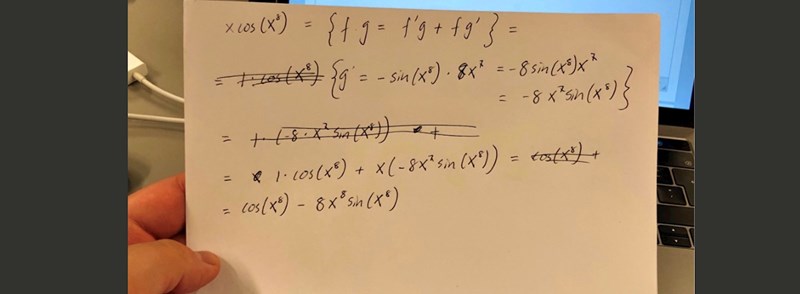 x cos(x⁸) = {f g = f'g + f g'} =
= 1·cos(x⁸) {g' = -sin(x⁸)·8x⁷ = -8sin(x⁸)x⁷
= -8x⁷sin(x⁸)}
= 1·(-8·x⁷sin(x⁸)) +
= 1·cos(x⁸) + x(-8x⁷sin(x⁸)) = cos(x⁸) +
= cos(x⁸) - 8x⁸sin(x⁸)